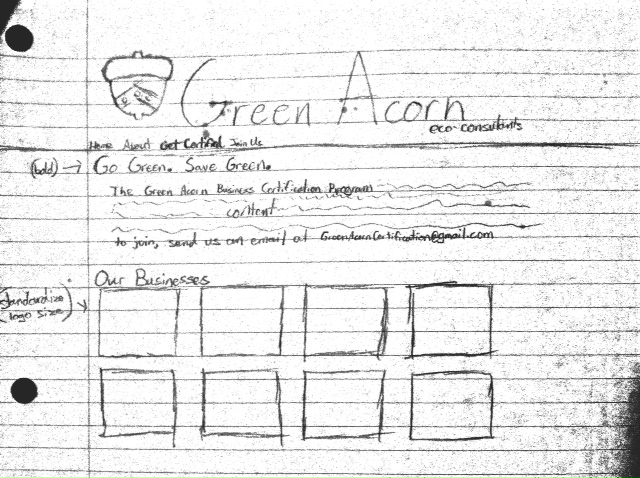 Green Acorn
eco-consultants
Home About Get Certified Join Us
(bold) → Go Green. Save Green.
The Green Acorn Business Certification Program
content
to join, send us an email at GreenAcornCertification@gmail.com
Our Businesses
(standardize
logo size)